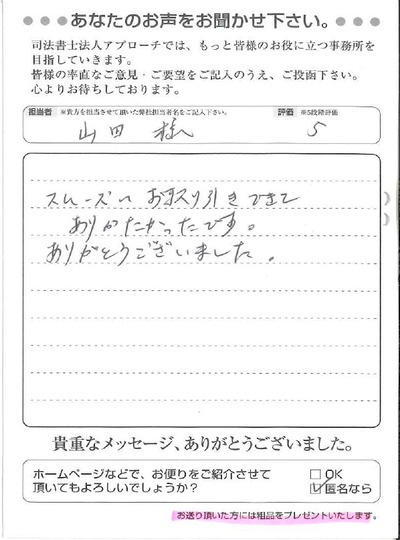 ●●●あなたのお声をお聞かせ下さい。●●●
司法書士法人アプローチでは、もっと皆様のお役に立つ事務所を
目指していきます。
皆様の率直なご意見・ご要望をご記入のうえ、ご投函下さい。
心よりお待ちしております。
担当者 ※貴方を担当させて頂いた弊社担当者名をご記入下さい。 評価 ※5段階評価
山田 様へ 5
スムーズに お取り引きできて
ありがたかったです。
ありがとうございました。
貴重なメッセージ、ありがとうございました。
ホームページなどで、お便りをご紹介させて
頂いてもよろしいでしょうか？
□ OK
☑ 匿名なら
お送り頂いた方には粗品をプレゼントいたします。